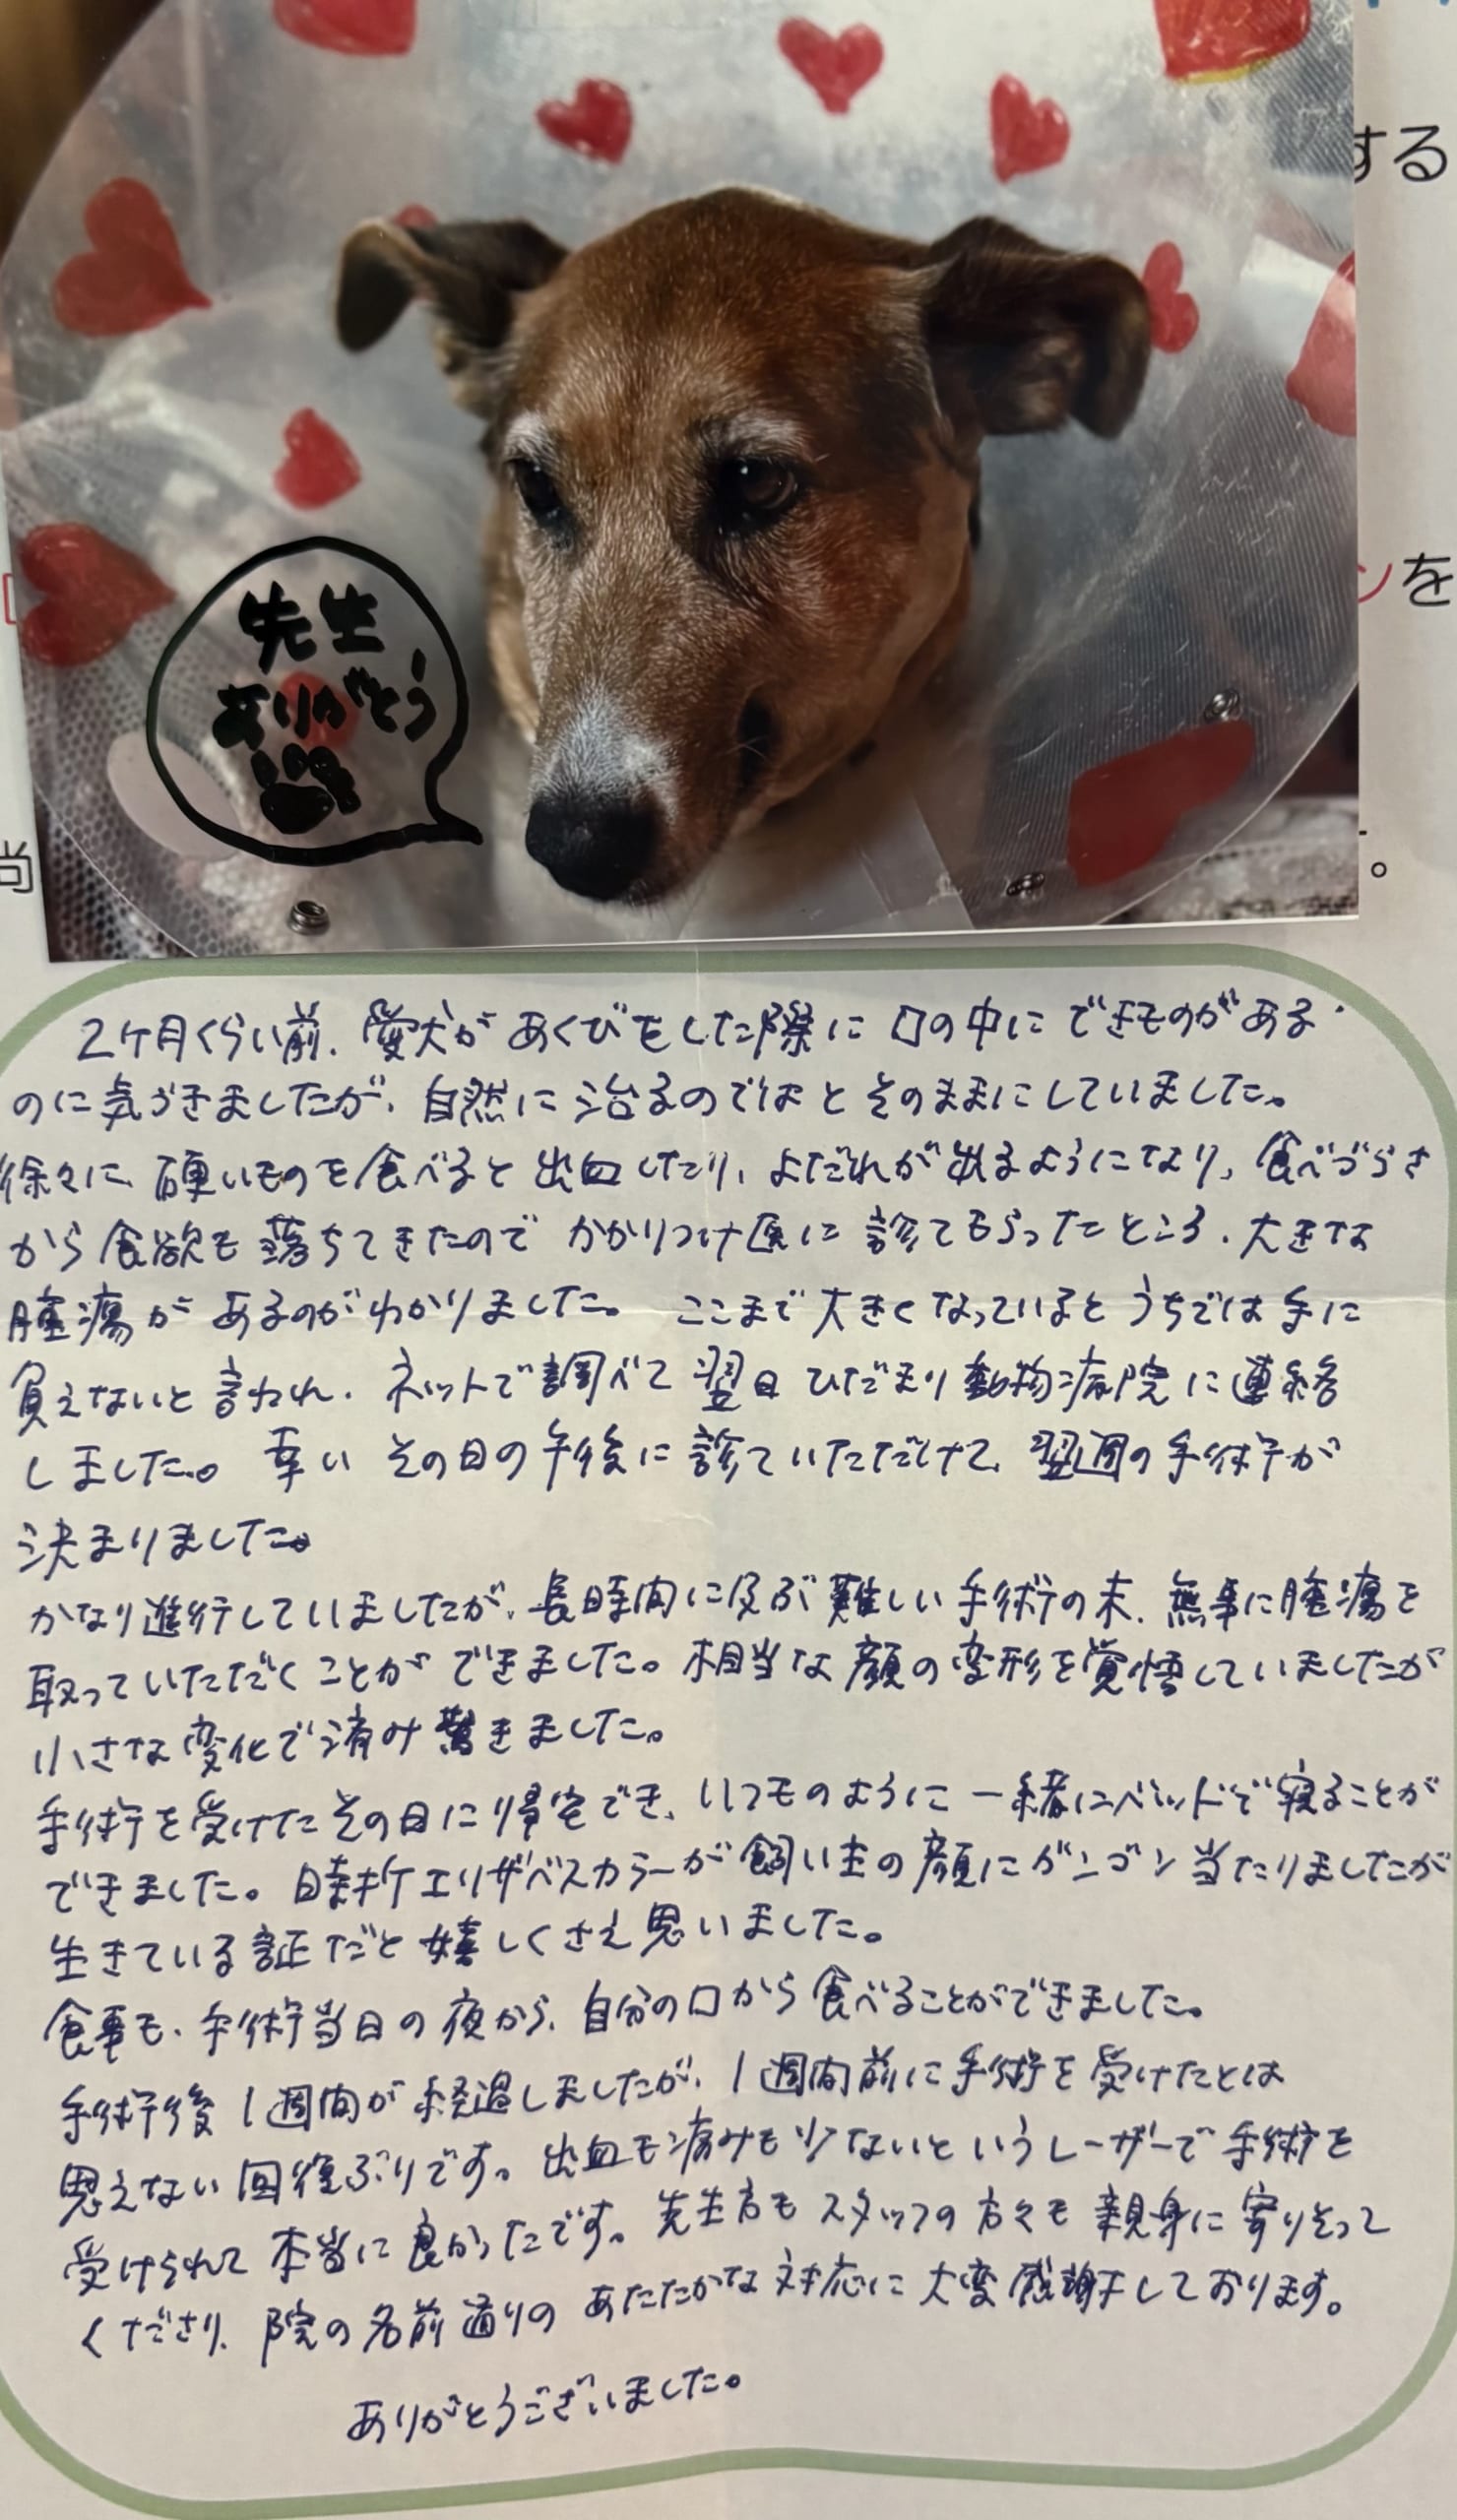 する
ンを
先生
ありがとう
尚
。
2ケ月くらい前、愛犬があくびをした際に口の中にできものがある
のに気づきましたが、自然に治るのではとそのままにしていました。
徐々に硬いものを食べると出血したり、よだれが出るようになり、食べづらさ
から食欲も落ちてきたのでかかりつけ医に診てもらったところ、大きな
腫瘍があるのがわかりました。ここまで大きくなっているとうちでは手に
負えないと言われ、ネットで調べて翌日ひだまり動物病院に連絡
しました。幸いその日の午後に診ていただけて、翌週の手術が
決まりました。
かなり進行していましたが、長時間に及ぶ難しい手術の末、無事に腫瘍を
取っていただくことができました。相当な顔の変形を覚悟していましたが
小さな変化で済み驚きました。
手術を受けたその日に帰宅でき、いつものように一緒にベッドで寝ることが
できました。時折エリザベスカラーが飼い主の顔にガンゴン当たりましたが
生きている証だと嬉しくさえ思いました。
食事も、手術当日の夜から、自分の口から食べることができました。
手術後1週間が経過しましたが、1週間前に手術を受けたとは
思えない回復ぶりです。出血も痛みも少ないというレーザーで手術を
受けられて本当に良かったです。先生方もスタッフの方々も親身に寄りそって
くださり、院の名前通りのあたたかな対応に大変感謝しております。
ありがとうございました。